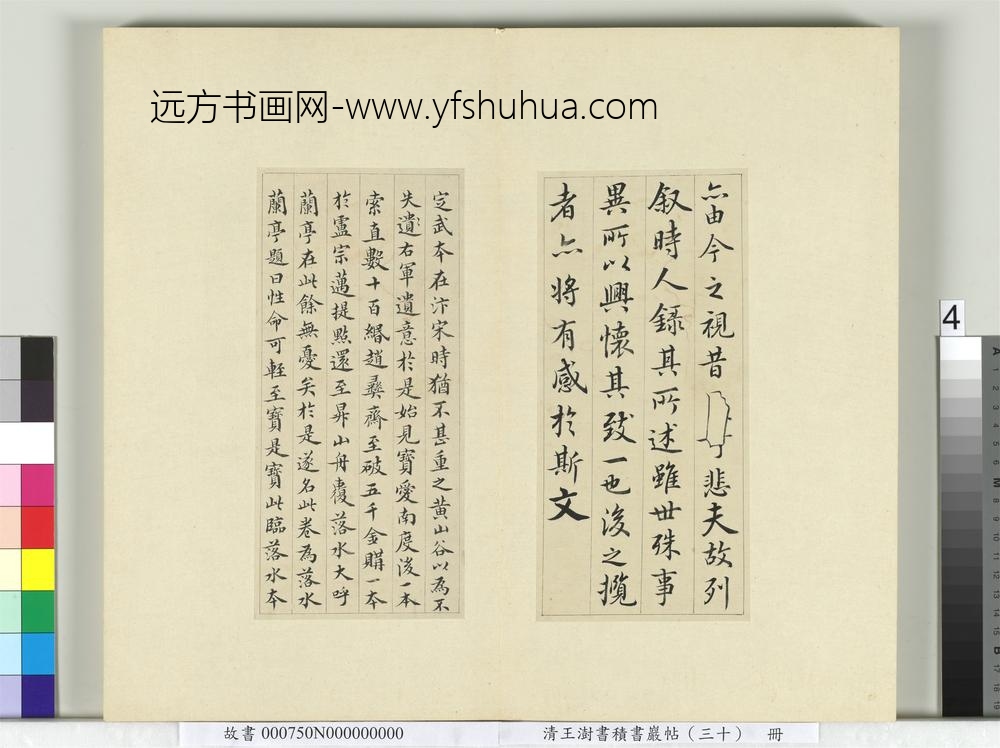 远方书画网-www.yfshuhua.com
亦由今之視昔悲夫故列
叙時人錄其所述雖世殊事
異所以興懷其致一也後之攬
者亦將有感於斯文
定武本在汴宋時猶不甚重之黄山谷以為不
失遺右軍遺意於是始見寶愛南度後一本
索直數十百緡趙彝齋至破五千金購一本
於盧宗邁提點還至昇山舟覆落水大呼
蘭亭在此餘無憂矣於是遂名此卷為落水
蘭亭題曰性命可輕至寶是寶此臨落水本
4
故書 000750N000000000
清王澍書積書巖帖（三十） 冊